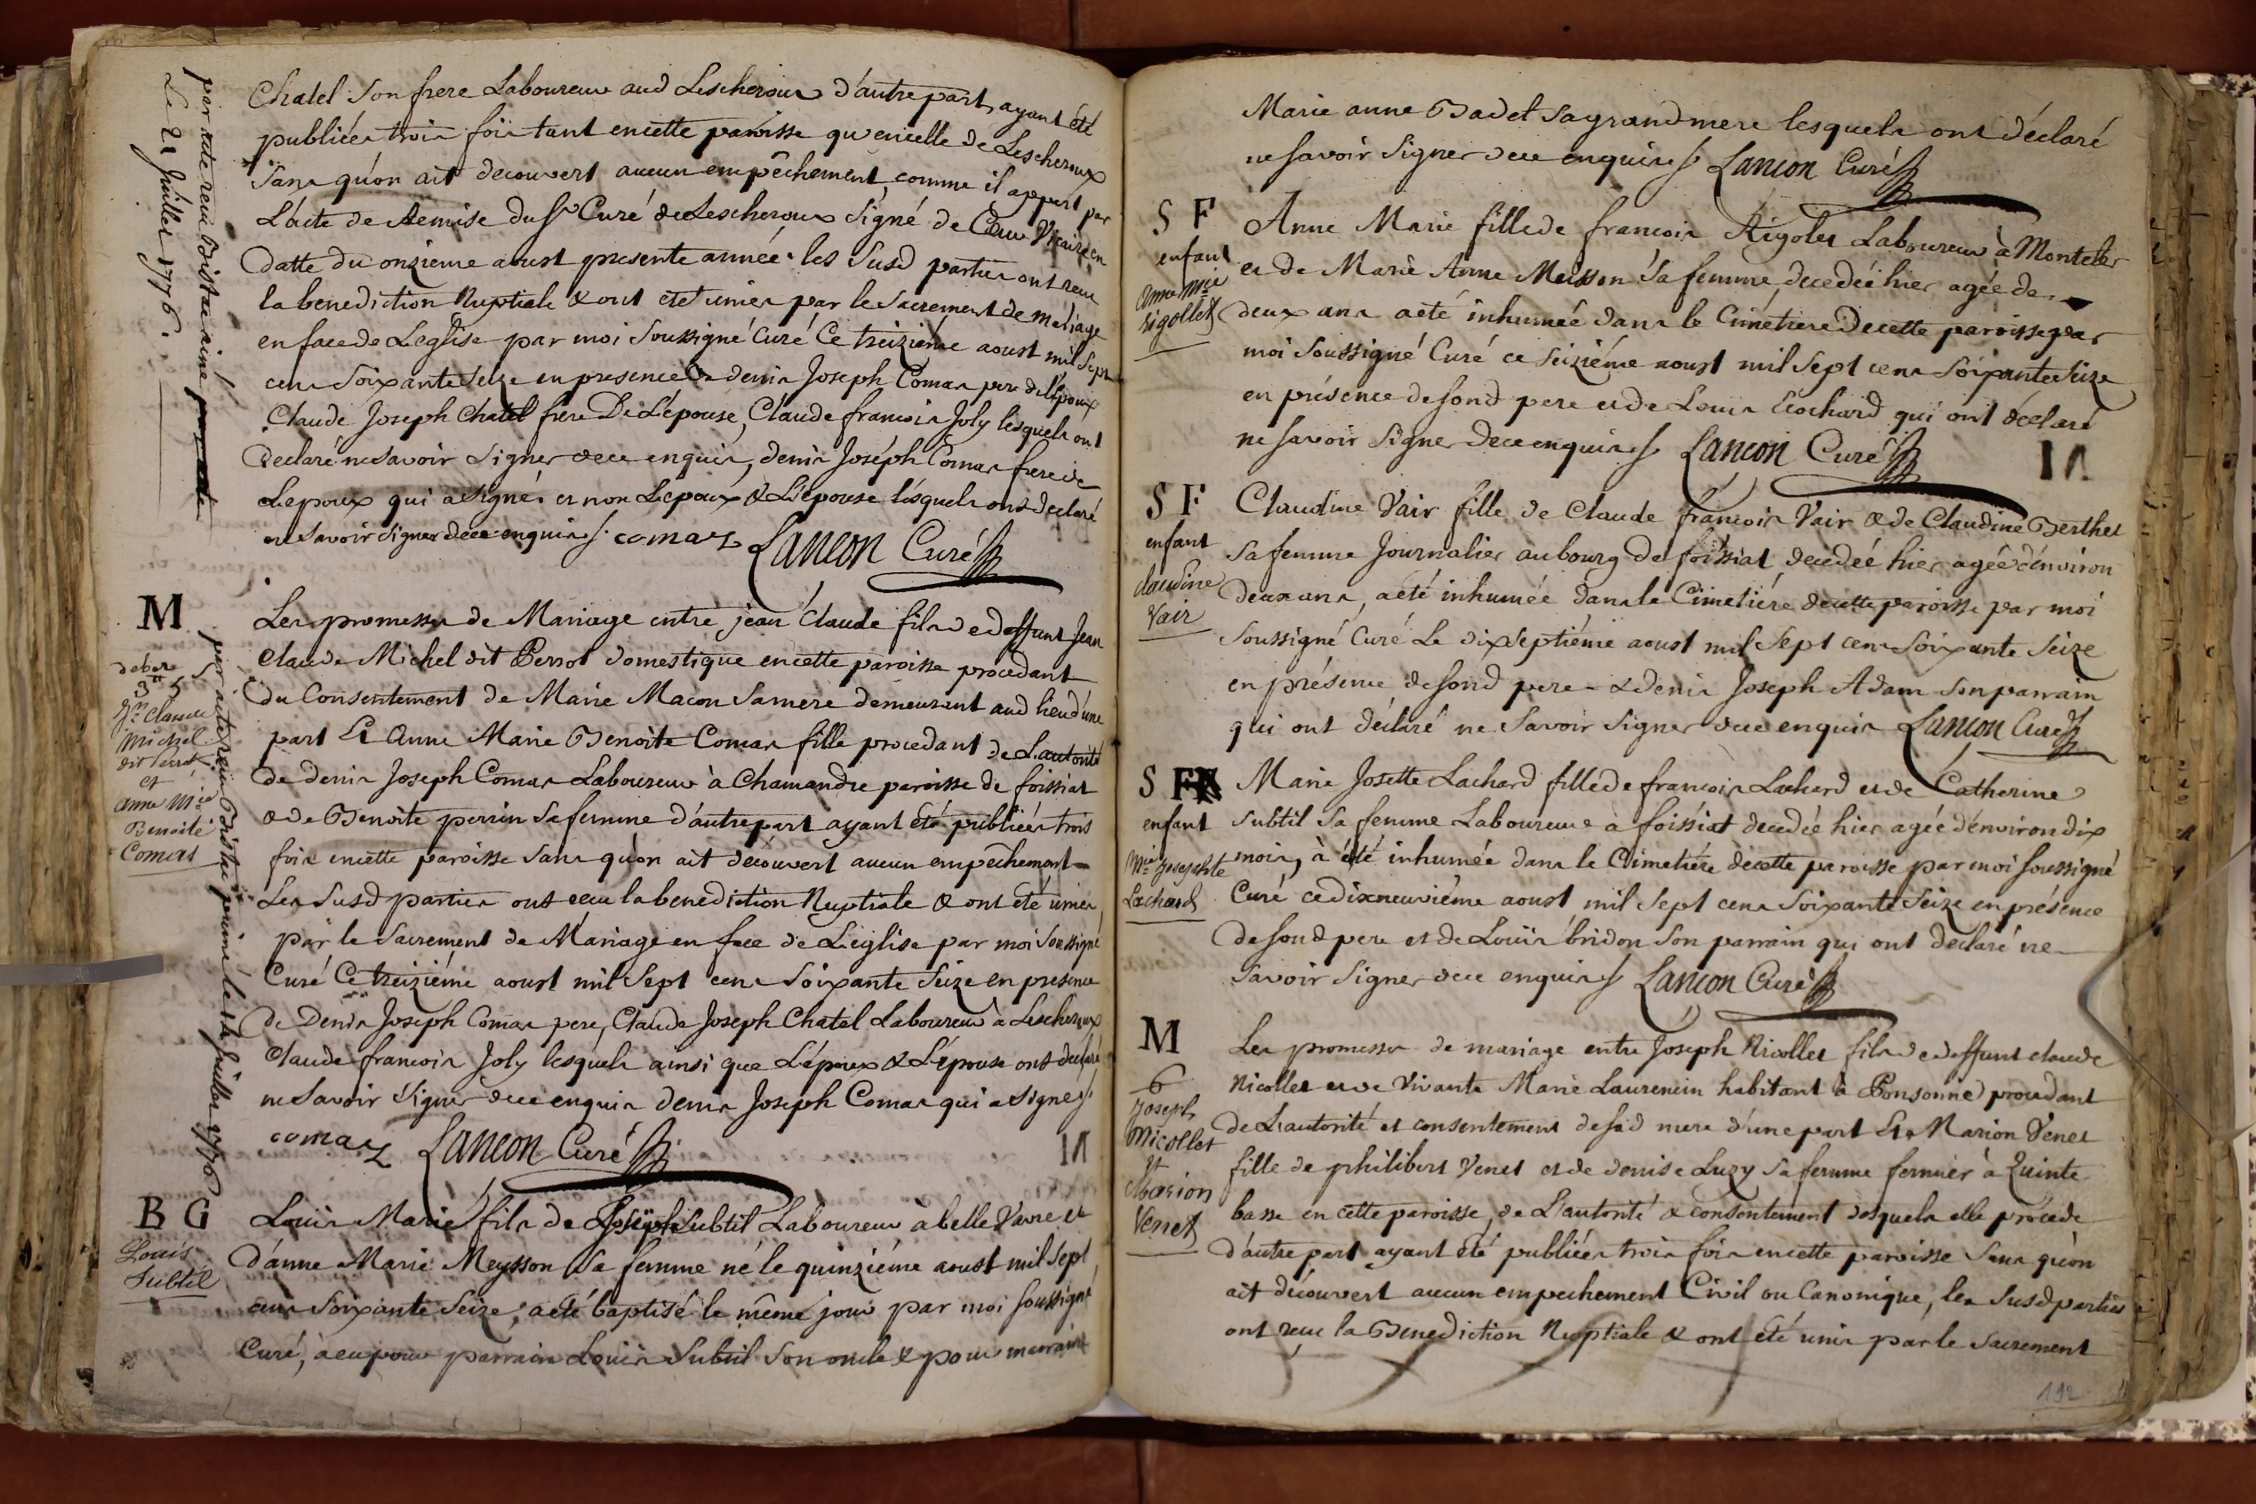 Chatel son frere Laboureur aud Lescheroux d'autre part, ayant été
publiées trois fois tant en cette paroisse qu'en celle de Lescheroux
sans qu'on ait decouvert aucun empêchement, comme il appert par
L'acte de Remise du Sr Curé de Lescheroux signé de Vicaire en
datte du onzieme aoust presente année les susd parties ont reçu
la benediction Nuptiale & ont eté unies par le Sacrement de mariage
en face de L'eglise par moi soussigné Curé Ce treizième aoust mil sept
cens soixante seize en presence de denis Joseph Comas pere de L'époux
Claude Joseph Chatel frere De L'épouse, Claude francois Joly lesquels ont
declaré ne savoir signer de ce enquis, denis Joseph Comas frere de
L'epoux qui a signé. et non L'epoux & L'épouse lesquels ont declaré
ne savoir signer de ce enquis comaz Lancon Curé
par acte reçu Distaie ainé par acte
Le 21 Juillet 1776.
M
3tt 5
Jn Claude
Michel
dit Perrot
et
anne Mie
Benoite
Comas
par acte reçu Distaie puiné le 14 Juillet 1776
Les promesses de Mariage entre jean Claude fils de deffunt Jean
Claude Michel dit Perrot domestique en cette paroisse procedant
du Consentement de Marie Macon sa mere demeurant aud lieu d'une
part Et Anne Marie Benoite Comas fille procedant de L'autorité
de denis Joseph Comas Laboureur à Chamandre paroisse de foissiat
& de Benoite perrin sa femme d'autre part ayant été publiées trois
fois en cette paroisse sans qu'on ait decouvert aucun empêchement
Les susd parties ont reçu la benediction Nuptiale & ont été unies
par le Sacrement de Mariage en face de L'eglise par moi soussigné
Curé Ce treizième aoust mil sept cens soixante seize en presence
de Denis Joseph Comas pere, Claude Joseph Chatel Laboureur à Lescheroux
Claude francois Joly lesquels ainsi que L'époux & L'épouse ont declaré
ne savoir signer de ce enquis denis Joseph Comas qui a signé
comaz Lancon Curé
B G
Louis
Subtil
Louis Marie fils de Joseph Subtil Laboureur à belle Vavre et
d'anne Marie Meysson sa femme né le quinzième aoust mil sept
cens soixante seize, a eté baptisé le même jour par moi soussigné
Curé, à eu pour parrain Louis Subtil son oncle & pour marraine
Marie anne Badet sa grand mere lesquels ont déclaré
ne savoir signer de ce enquis Lancon Curé
S F
enfant
anne mie
rigollet
Anne Marie fille de francois Rigolet Laboureur à
et de Marie Anne Meisson sa femme, decedée hier agée de
deux ans a été inhumée dans le Cimetiere de cette paroisse par
moi soussigné Curé ce seizième aoust mil sept cens soixante seize
en présence de sond pere et de Louis Ecochard qui ont déclaré
ne savoir signer de ce enquis Lancon Curé
S F
enfant
claudine
Vair
Claudine Vair fille de Claude francois Vair & de Claudine Berthet
sa femme Journalier au bourg de foissiat, decedée hier agée d'environ
deux ans, a été inhumée dans le Cimetière de cette paroisse par moi
soussigné Curé Le dix septième aoust mil sept cens soixante seize
en présence de sond pere & denis Joseph Adam son parrain
qui ont déclaré ne savoir signer de ce enquis Lancon Curé
S F
enfant
Mie Josephte
Lachard
Marie Josette Lachard fille de francois Lachard et de Catherine
subtil sa femme Laboureur à foissiat decedée hier agée d'environ dix
mois, à été inhumée dans le Cimetière de cette paroisse par moi soussigné
Curé ce dix neuvième aoust mil sept cens soixante seize en présence
de sond pere et de Louis bridon son parrain qui ont declaré ne
savoir signer de ce enquis Lancon Curé
M
6
Joseph
Nicollet
et
Marion
Venet
Les promesses de mariage entre Joseph Nicollet fils de deffunt claude
Nicollet et de Vivante Marie Laurencin habitant à Ponsonnd procedant
de L'autorité et consentement de sad mere d'une part Et Marion Venet
fille de philibert Venet et de denise Luzy sa femme fermier à Quinte
basse en cette paroisse, de L'autorité & consentement desquels elle procede
d'autre part ayant été publiées trois fois en cette paroisse sans qu'on
ait découvert aucun empechement Civil ou Canonique, les susd parties
ont reçu la Benediction Nuptiale & ont été unis par le Sacrement
192